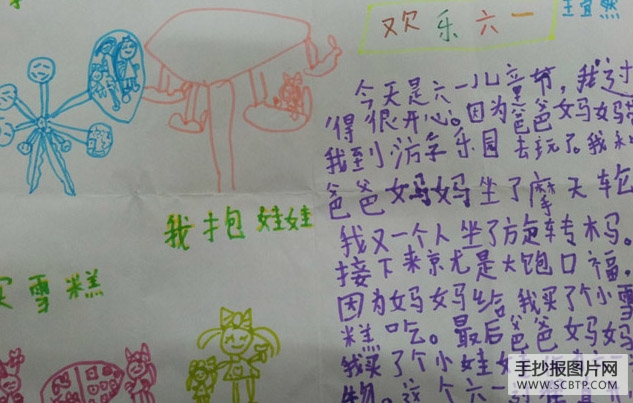 欢乐六一
王宜然
今天是六一儿童节，我过
得很开心。因为爸爸妈妈带
我到游乐园去玩了。我和
爸爸妈妈坐了摩天轮
我又一个人坐了旋转木马。
接下来就是大饱口福，
因为妈妈给我买了个小雪
糕吃。最后爸爸妈妈
我买了个小娃娃
物。这个六一
我抱娃娃
买雪糕
手抄报图片网
WWW.SCBTP.COM